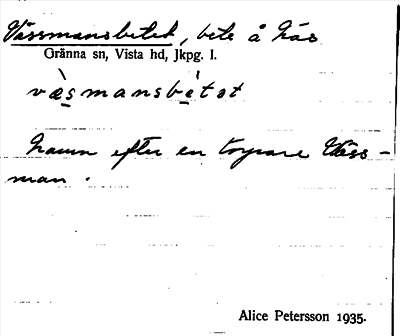 Vässmansbetet, bete å Näs
Gränna sn, Vista hd, Jkpg. l.
væsmansbetət
Namn efter en torpare Väss-
man.
Alice Petersson 1935.